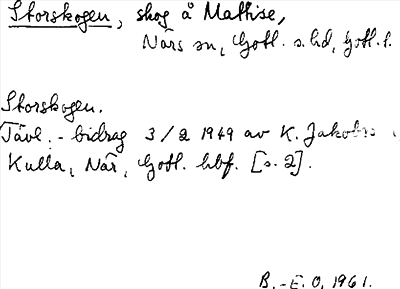 Storskogen, skog å Mattise,
Närs sn, Gotl. s. hd, Gotl. l.
Storskogen.
Tävl.-bidrag 3/2 1949 av K. Jakobs
Kulla, När, Gotl. hbf. [s. 2].
B.-E. O. 1961.